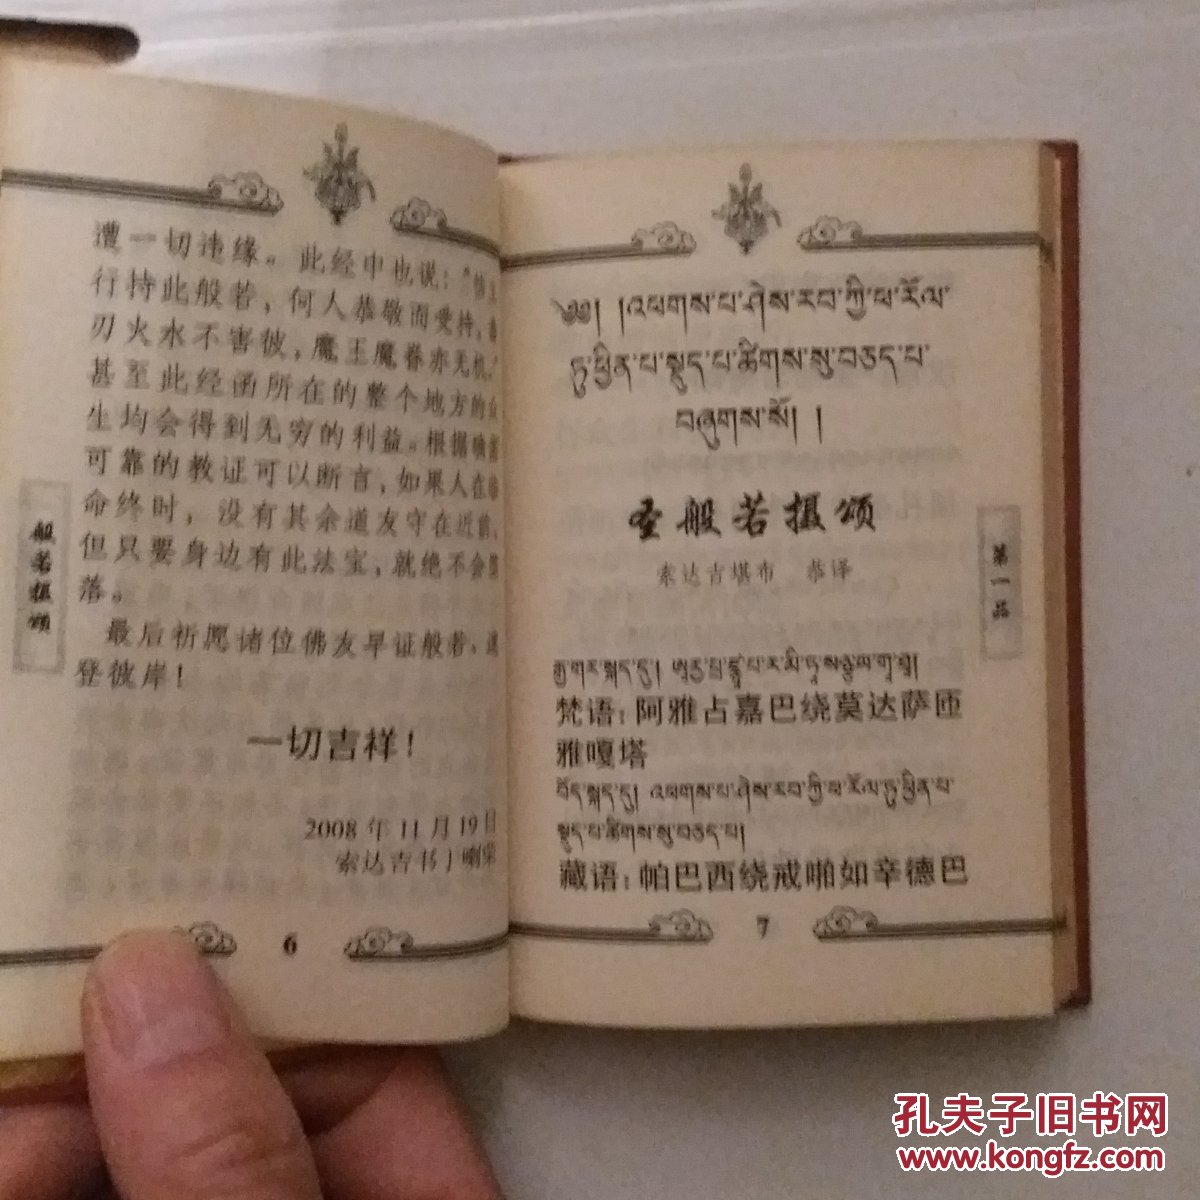 遭一切违缘。此经中也说:"
行持此般若,何人恭敬而受持,
刃火水不害彼,魔王魔眷亦无机。"
甚至此经函所在的整个地方的众
生均会得到无穷的利益。根据
可靠的教证可以断言,如果人在
命终时,没有其余道友守在近前,
但只要身边有此法宝,就绝不会
落。
最后祈愿诸位佛友早证般若,
登彼岸!
一切吉祥!
2008年11月19日
索达吉书于喇荣
般若摄颂
6
༄༅། །འཕགས་པ་ཤེས་རབ་ཀྱི་ཕ་རོལ་
ཏུ་ཕྱིན་པ་སྡུད་པ་ཚིགས་སུ་བཅད་པ་
བཞུགས་སོ། །
圣般若摄颂
索达吉堪布 恭译
第一品
རྒྱ་གར་སྐད་དུ།
梵语:阿雅占嘉巴绕莫达萨匝
雅嘎塔
བོད་སྐད་དུ། འཕགས་པ་ཤེས་རབ་ཀྱི་ཕ་རོལ་ཏུ་ཕྱིན་པ་
སྡུད་པ་ཚིགས་སུ་བཅད་པ།
藏语:帕巴西绕戒啪如辛德巴
7
孔夫子旧书网
www.kongfz.com